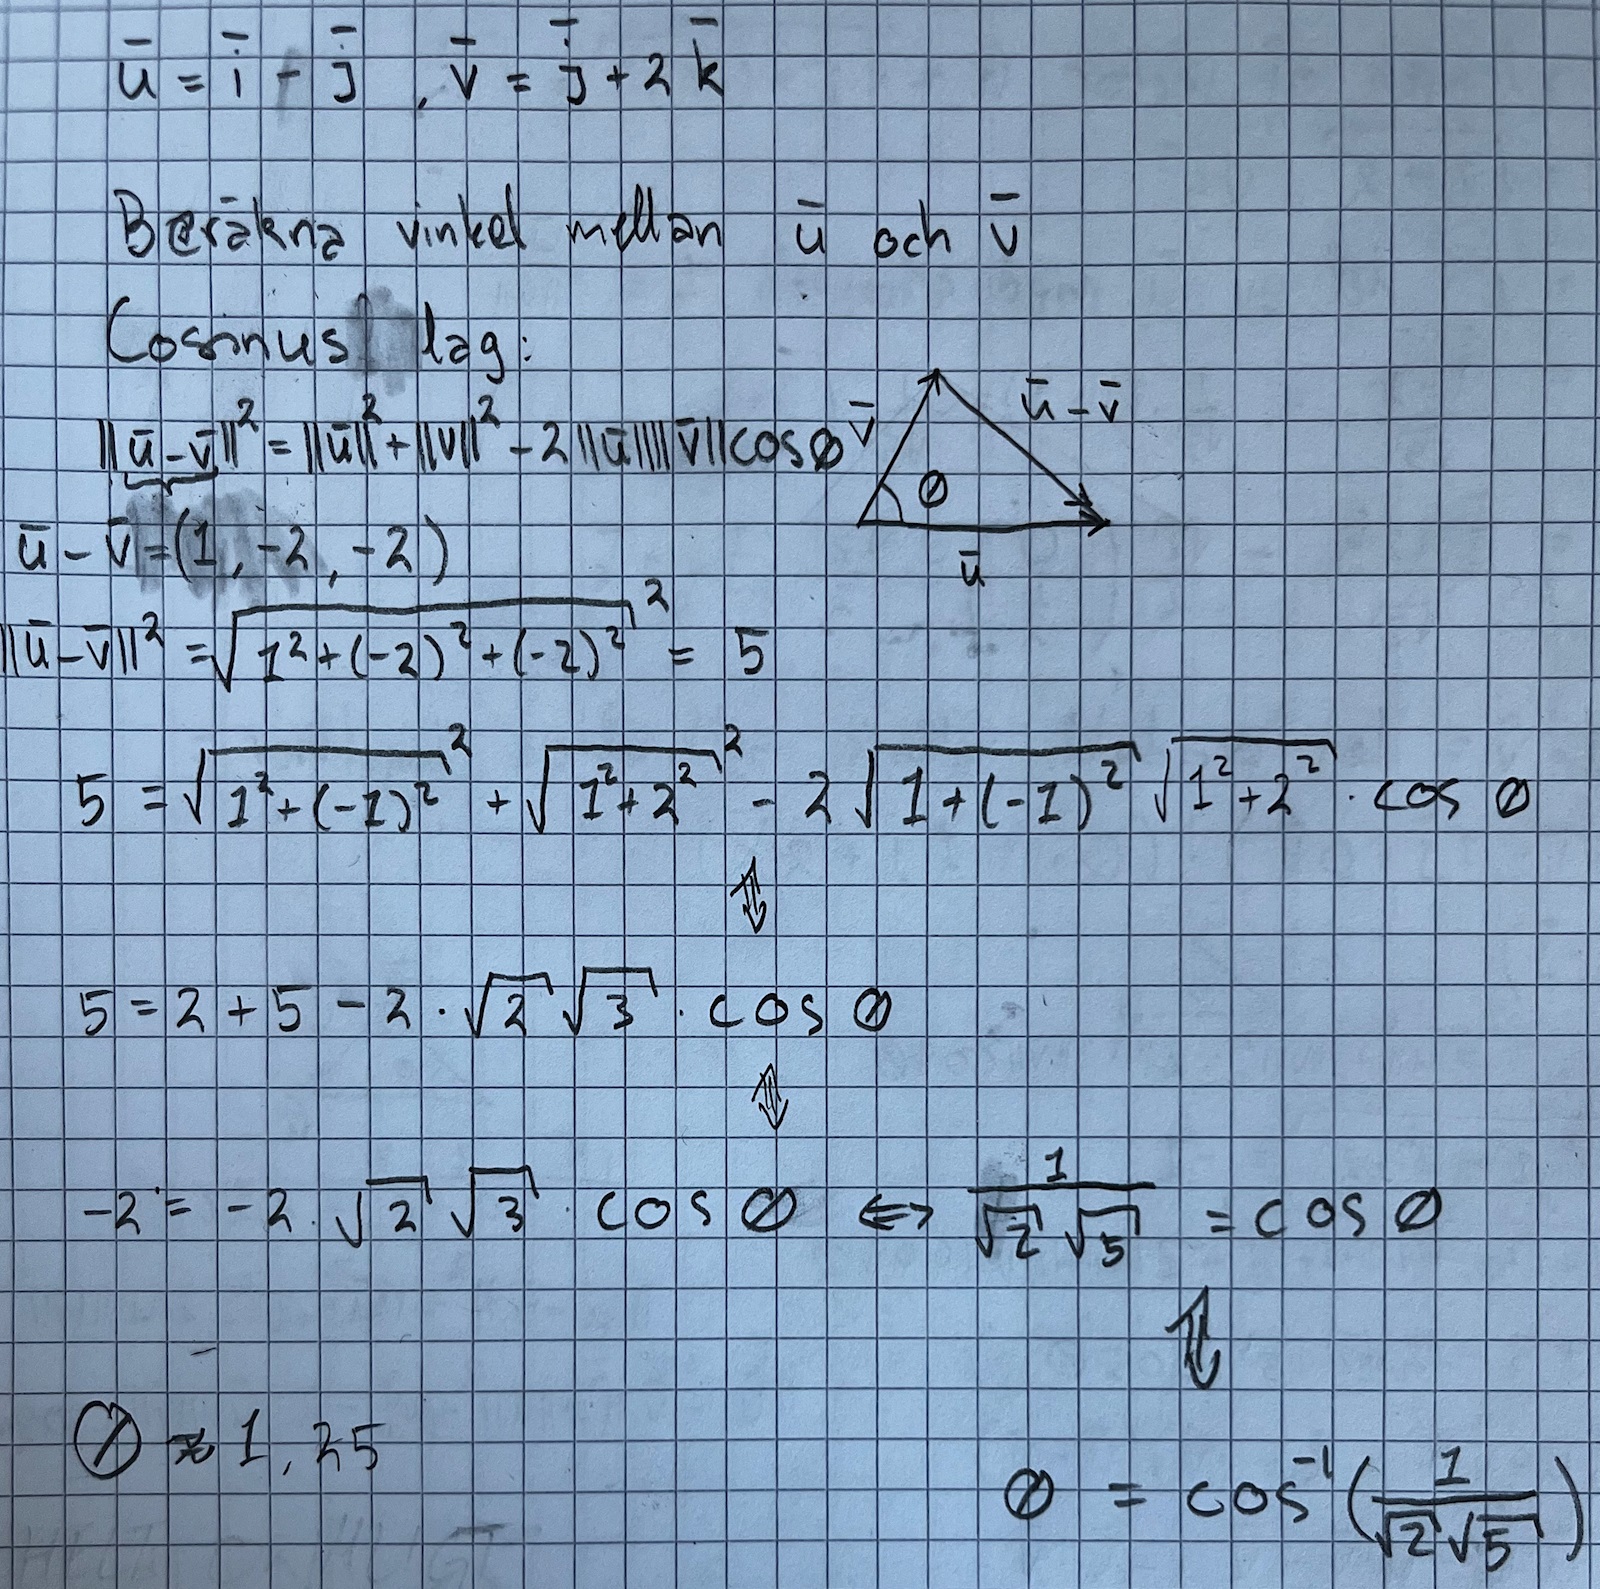 ū = ī - j̄ , v̄ = j̄ + 2 k̄
Beräkna vinkel mellan ū och v̄
Cosinus lag:
||ū - v̄||² = ||ū||² + ||v||² - 2 ||ū|| ||v̄|| cos Ø
v̄
ū - v̄
Ø
ū
ū - v̄ = (1, -2, -2)
||ū - v̄||² = √(1² + (-2)² + (-2)²)² = 5
5 = √(1² + (-1)²)² + √(1² + 2²)² - 2 √(1 + (-1)²) √(1² + 2²) · cos Ø
⇕
5 = 2 + 5 - 2 · √2 √3 · cos Ø
⇕
-2 = -2 · √2 √3 · cos Ø ⇔ 1/(√2 √5) = cos Ø
⇕
Ø ≈ 1,25
Ø = cos⁻¹(1/(√2 √5))